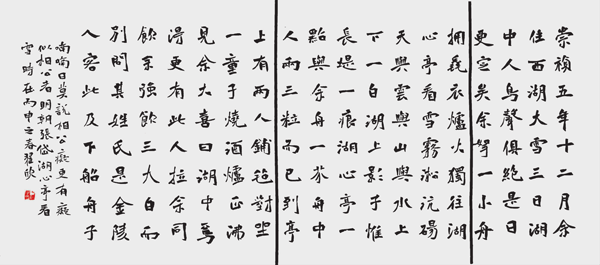 崇禎五年十二月余
住西湖大雪三日湖
中人鳥聲俱絕是日
更定矣余拏一小舟
擁毳衣爐火獨往湖
心亭看雪霧凇沆碭
天與雲與山與水上
下一白湖上影子惟
長堤一痕湖心亭一
點與余舟一芥舟中
人兩三粒而已到亭
上有兩人鋪氈對坐
一童子燒酒爐正沸
見余大喜曰湖中焉
得更有此人拉余同
飲余強飲三大白而
別問其姓氏是金陵
人客此及下船舟子
喃喃曰莫說相公癡更有癡
似相公者明朝張岱湖心亭看
雪時在丙申之春